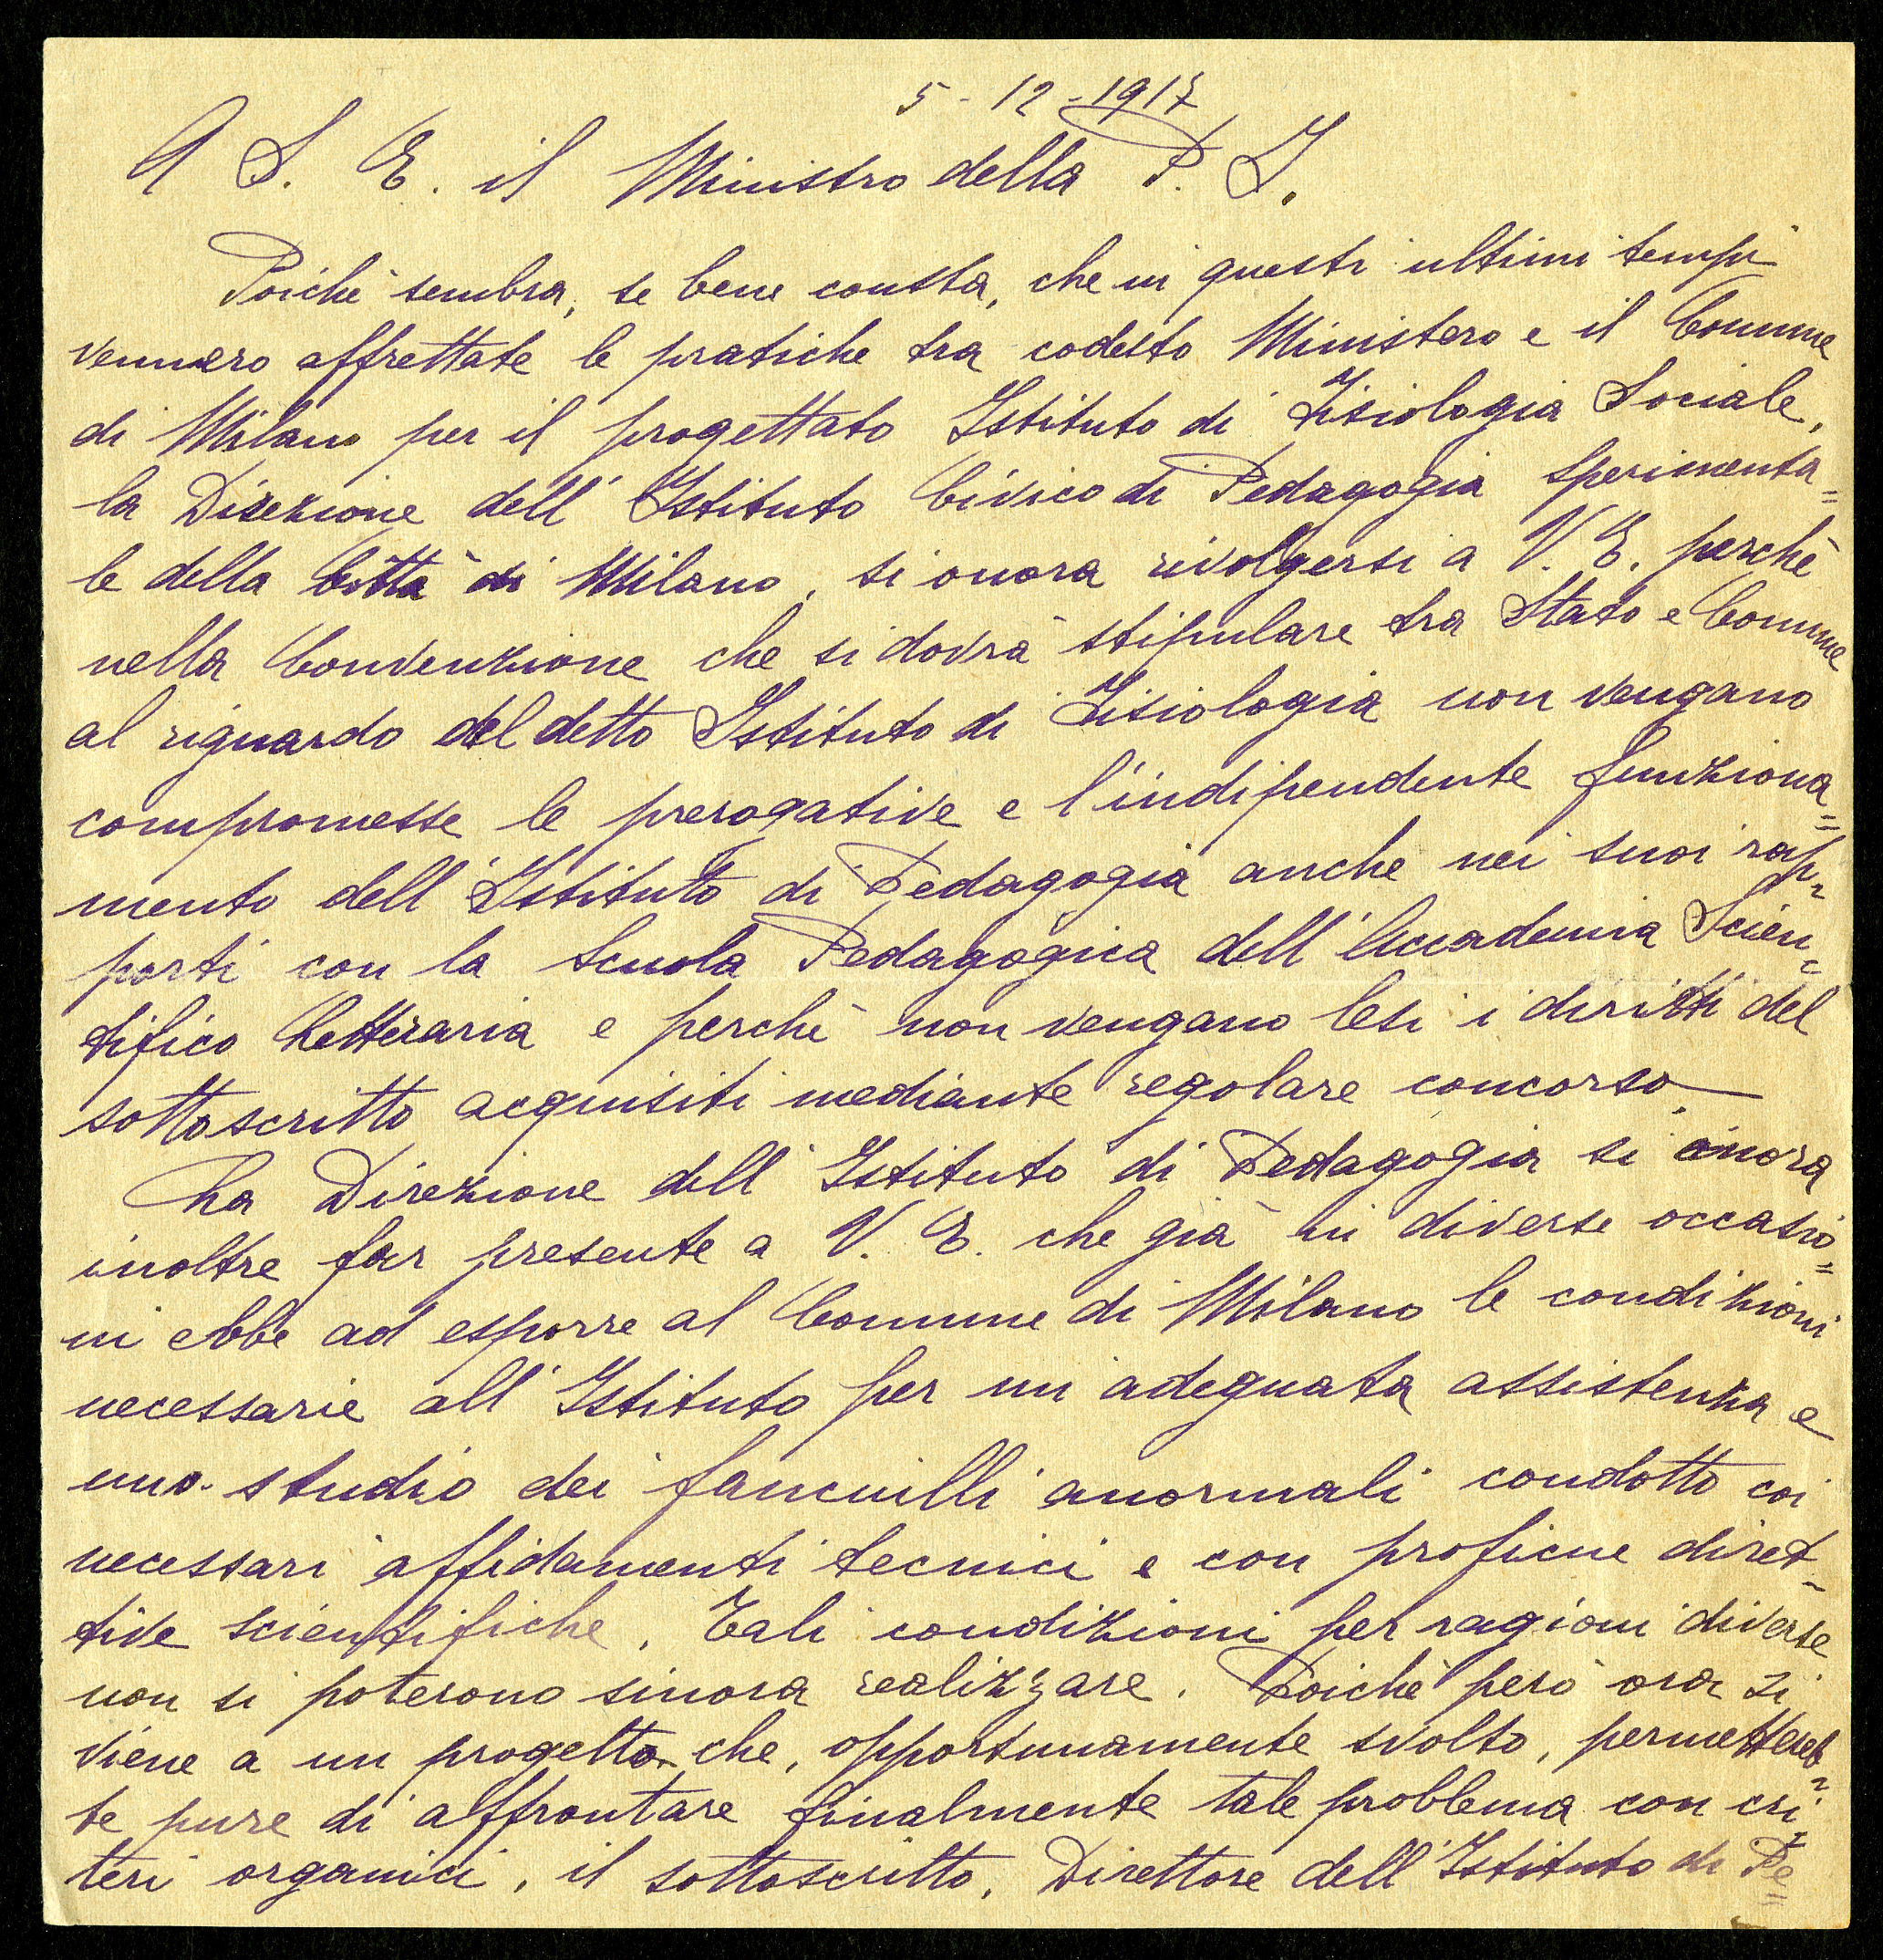 5-12-1917
A S. E. il Ministro della P. I.
Poichè sembra, se bene consta, che in questi ultimi tempi
vennero affrettate le pratiche tra codesto Ministero e il Comune
di Milano per il progettato Istituto di Fisiologia Sociale,
la Direzione dell'Istituto Civico di Pedagogia sperimenta=
le della Città di Milano, si onora rivolgersi a V. E. perchè
nella Convenzione che si dovrà stipulare tra Stato e Comune
al riguardo del detto Istituto di Fisiologia non vengano
compromesse le prerogative e l'indipendente funziona=
mento dell'Istituto di Pedagogia anche nei suoi rap=
porti con la Scuola Pedagogica dell'Accademia Scien=
tifico Letteraria e perchè non vengano lesi i diritti del
sottoscritto acquisiti mediante regolare concorso.—
La Direzione dell'Istituto di Pedagogia si onora
inoltre far presente a V. E. che già in diverse occasio=
ni ebbe ad esporre al Comune di Milano le condizioni
necessarie all'Istituto per un'adeguata assistenza e
uno studio dei fanciulli anormali condotto coi
necessari affidamenti tecnici e con proficue diret-
tive scientifiche. Tali condizioni per ragioni diverse
non si poterono sinora realizzare. Poichè però ora si
viene a un progetto che, opportunamente svolto, permettereb=
be pure di affrontare finalmente tale problema con cri=
teri organici, il sottoscritto, Direttore dell'Istituto di Pe=